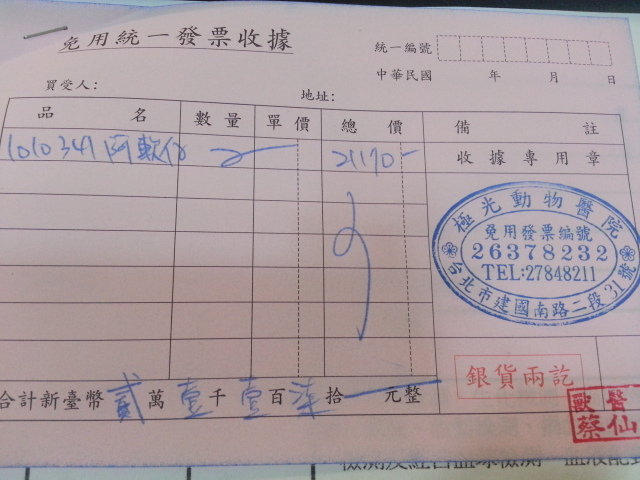 免用統一發票收據
統一編號
中華民國 年 月 日
買受人:
地址:
品 名 數量 單價 總 價 備 註
1010341 阿軟仔 21170-
收據專用章
極光動物醫院
免用發票編號
26378232
TEL:27848211
台北市建國南路二段31號
銀貨兩訖
合計新臺幣 貳 萬 壹 千 壹 百 柒 拾 元整
獸醫
蔡仙